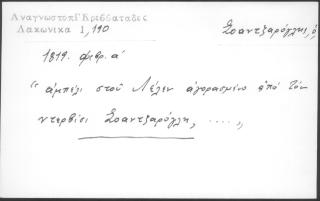 Αναγνωστοπ Γ Κρεββαταδες
Λακωνικα 1,190
Σοαντζαρόγλης, ὁ
1819. φεβρ. α΄
"ἀμπέλι στοῦ Λέλεν ἀγορασμένο ἀπό τόν
ντερβίση Σοαντζαρόγλη, ....,